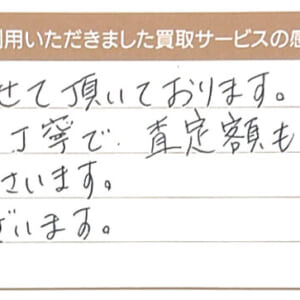 利用いただきました買取サービスの感
せて頂いております。
丁寧で、査定額も
さいます。
ざいます。